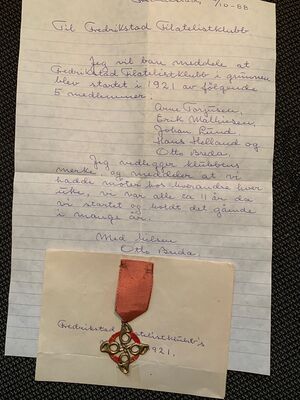 7/10-88
Til Fredrikstad Filatelistklubb
Jeg vil bare meddele at
Fredrikstad Filatelistklubb i grunnen
blev startet i 1921 av følgende
5 medlemmer.
Arne Torgusen,
Erik Mathiesen,
Johan Lund,
Hans Helland og
Otto Breda.
Jeg vedlegger klubbens
merke og meddeler at vi
hadde møter hos hverandre hver
uke, vi var alle ca 11 år da
vi startet og holdt det gående
i mange år.
Med hilsen
Otto Breda.
Fredrikstad
1921.